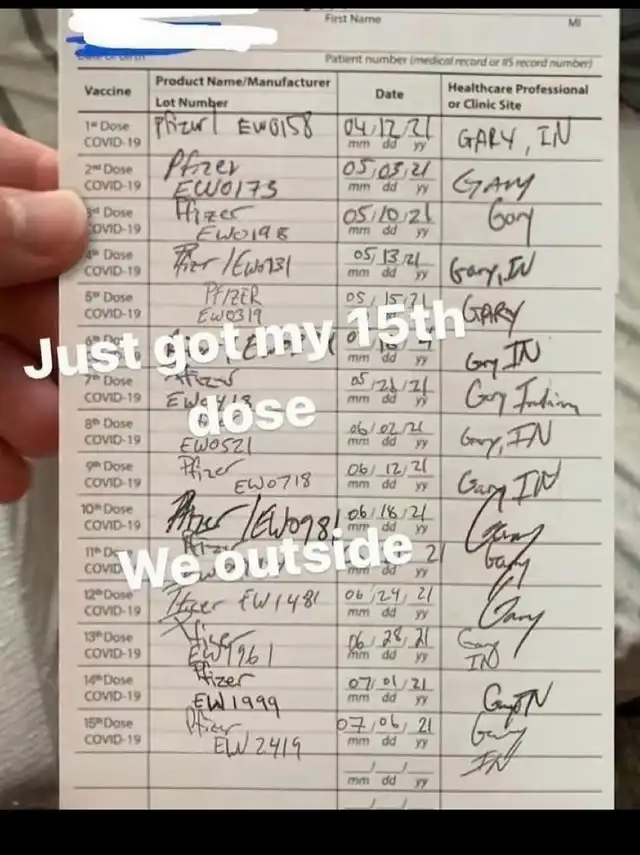 First Name MI
Patient number (medical record or IIS record number)
Vaccine Product Name/Manufacturer Lot Number Date Healthcare Professional or Clinic Site
1st Dose COVID-19 Pfizer EW0158 04/12/21 mm dd yy GARY, IN
2nd Dose COVID-19 Pfizer EW0173 05/03/21 mm dd yy GARY
3rd Dose COVID-19 Pfizer EW0198 05/10/21 mm dd yy Gary
4th Dose COVID-19 Pfizer/EW0231 05/13/21 mm dd yy Gary, IN
5th Dose COVID-19 PFIZER EW0319 05/15/21 mm dd yy GARY
Just got my 15th
mm dd yy Gary IN
7th Dose COVID-19 Pfizer 05/21/21 mm dd yy Gary Indiana
dose
8th Dose COVID-19 EW0521 06/02/21 mm dd yy Gary, IN
9th Dose COVID-19 Pfizer EW0718 06/12/21 mm dd yy Gary IN
10th Dose COVID-19 Pfizer/EW0981 06/18/21 mm dd yy Gary
11th Dose Pfizer 21 mm dd yy Gary
We outside
12th Dose COVID-19 Pfizer EW1481 06/24/21 mm dd yy Gary
13th Dose COVID-19 Pfizer EW1961 06/28/21 mm dd yy Gary IN
14th Dose COVID-19 Pfizer EW1999 07/01/21 mm dd yy Gary IN
15th Dose COVID-19 Pfizer EW2419 07/06/21 mm dd yy Gary IN
mm dd yy